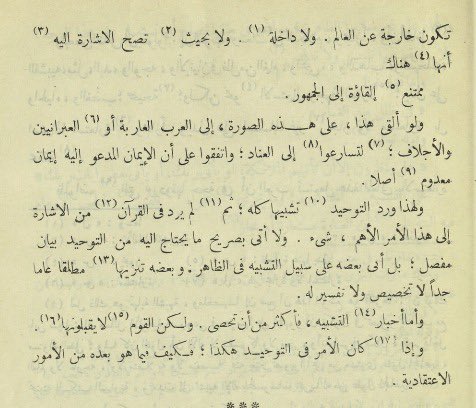 تكون خارجة عن العالم . ولا داخلة (١) . ولا بحيث (٢) تصح الاشارة اليه (٣)
أنها (٤) هناك
ممتنع (٥) إلقاؤة إلى الجمهور .
ولو ألقى هذا ، على هــذه الصورة ، إلى العرب العاربة أو (٦) العبرانيين
والأجلاف ؛ (٧) لتسارعوا (٨) إلى العناد ؛ واتفقوا على أن الإيمان المدعو إليه إيمان
معدوم (٩) أصلا
ولهذا ورد التوحيد (١٠) تشبيها كله ؛ ثم (١١) لم يرد فى القرآن (١٢) من الاشارة
إلى هذا الأمر الأهم ، شىء . ولا أتى بصريح ما يحتاج اليه من التوحيد بيان
مفصل ؛ بل أتى بعضه على سبيل التشبيه فى الظاهر . وبعضه تنزيها (١٣) مطلقا عاما
جداً لا تخصيص ولا تفسير له .
وأما أخبار (١٤) التشبيه ، فأكثر من أن تحصى . ولكن القوم (١٥) لا يقبلونها (١٦)
وإذا (١٧) كان الأمر فى التوحيــد هكذا ؛ فكيف فيما هو بعده من الأمور
الاعتقادية .
***